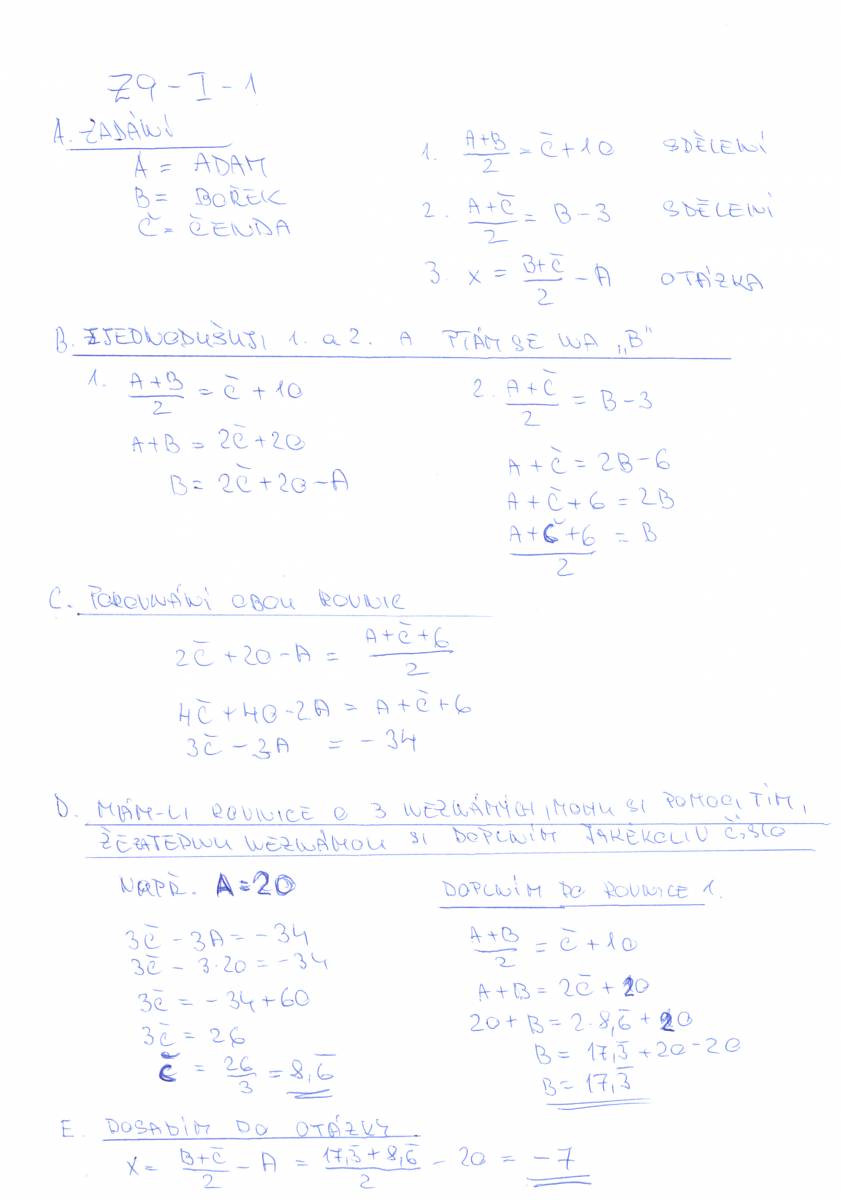 Z9-I-1
A. ZADÁNÍ
A = ADAM
B = BOŘEK
Č = ČENDA
1. (A+B)/2 = Č+10 SDĚLENÍ
2. (A+Č)/2 = B-3 SDĚLENÍ
3. x = (B+Č)/2 - A OTÁZKA
B. ZJEDNODUŠUJI 1. a 2. A PTÁM SE NA „B"
1. (A+B)/2 = Č+10
A+B = 2Č+20
B = 2Č+20-A
2. (A+Č)/2 = B-3
A+Č = 2B-6
A+Č+6 = 2B
(A+Č+6)/2 = B
C. POROVNÁNÍ OBOU ROVNIC
2Č+20-A = (A+Č+6)/2
4Č+40-2A = A+Č+6
3Č-3A = -34
D. MÁM-LI ROVNICE O 3 NEZNÁMÝCH, MOHU SI POMOCI TÍM,
ŽE ZA JEDNU NEZNÁMOU SI DOPLNÍM JAKÉKOLIV ČÍSLO
NAPŘ. A=20
3Č-3A = -34
3Č-3·20 = -34
3Č = -34+60
3Č = 26
Č = 26/3 = 8,6̅
DOPLNÍM DO ROVNICE 1.
(A+B)/2 = Č+10
A+B = 2Č+20
20+B = 2·8,6̅+20
B = 17,3̅+20-20
B = 17,3̅
E. DOSADÍM DO OTÁZKY
x = (B+Č)/2 - A = (17,3̅+8,6̅)/2 - 20 = -7